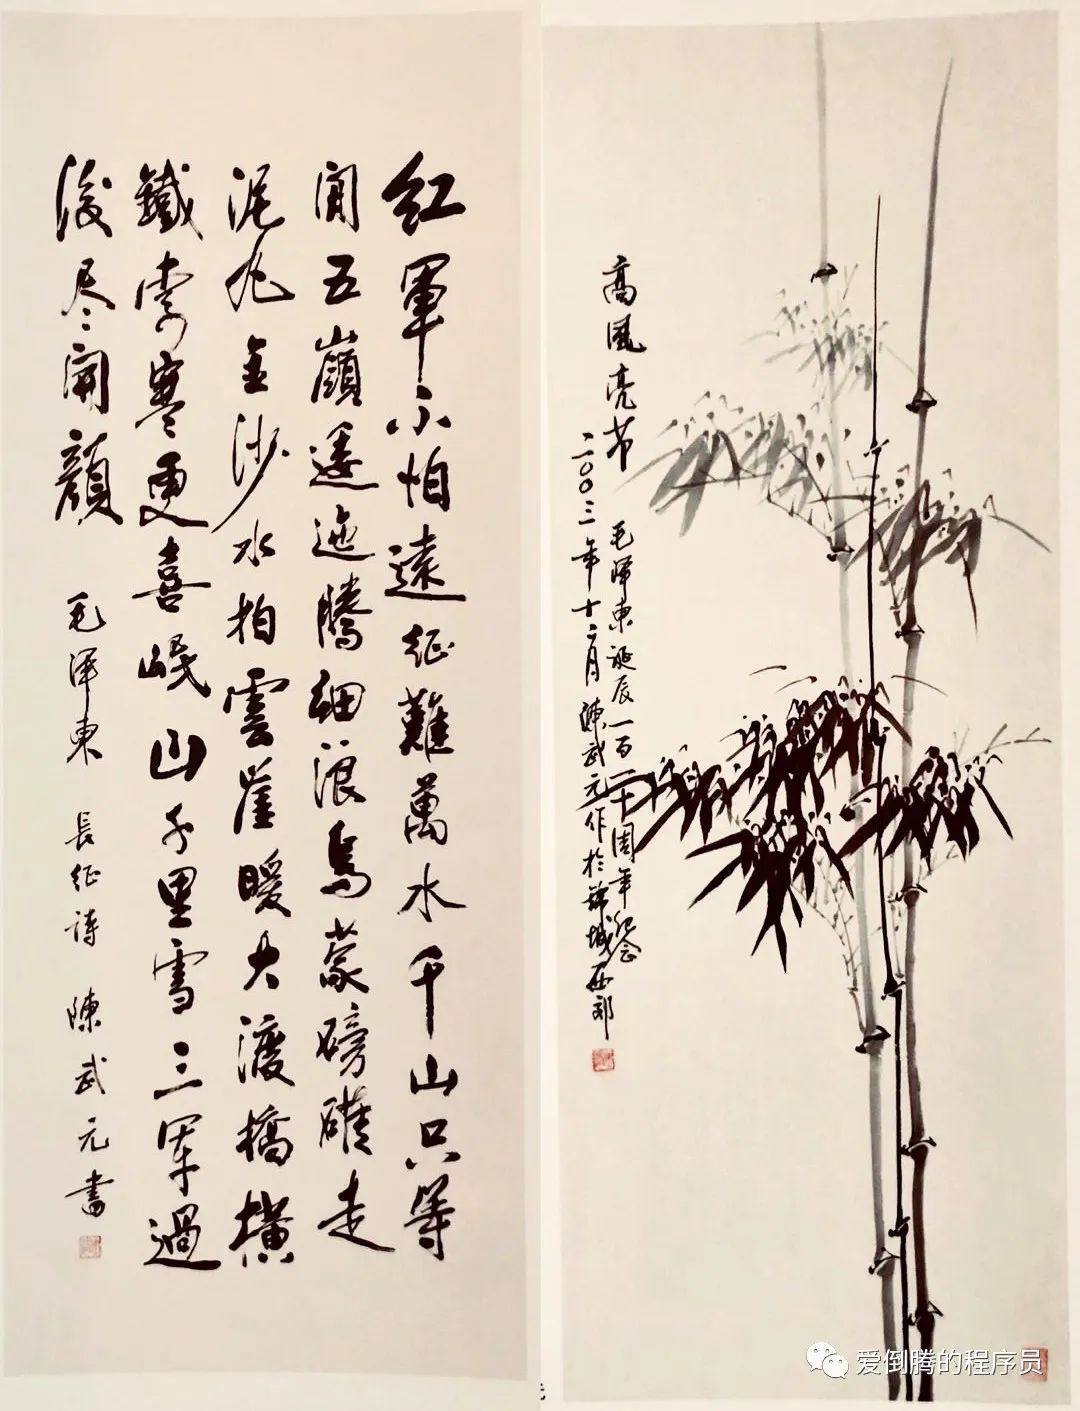 红軍不怕遠征難萬水千山只等
閒五嶺逶迤騰細浪烏蒙磅礴走
泥丸金沙水拍雲崖暖大渡橋橫
鐵索寒更喜岷山千里雪三军過
後尽開顏 毛澤東 長征詩 陳武元書
高風亮节 毛澤東诞辰一百一十周年纪念
二〇〇三年十二月陳武元作於锦城西郊
爱倒腾的程序员